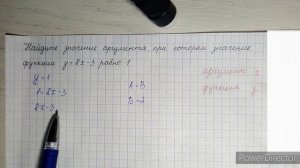 Найдите значение аргумента, при котором значение
функции y=8x-3 равно 1.
y=1
1=8x-3
8x-3
A=B
B=A
аргумент x
функция y
PowerDirector